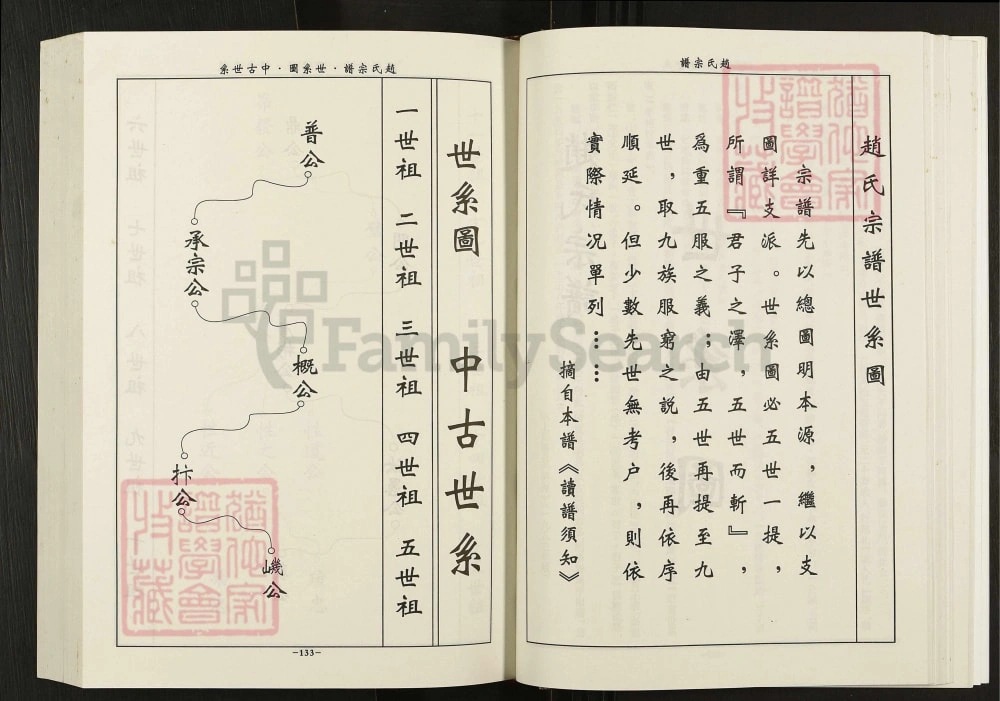 趙氏宗譜
趙氏宗譜世系圖
宗譜先以總圖明本源，繼以支
圖詳支派。世系圖必五世一提，
所謂『君子之澤，五世而斬』，
爲重五服之義；由五世再提至九
世，取九族服窮之說，後再依序
順延。但少數先世無考户，則依
實際情况單列……
摘自本譜《讀譜須知》
趙氏宗譜·世系圖·中古世系
世系圖 中古世系
一世祖 二世祖 三世祖 四世祖 五世祖
普公
承宗公
概公
抃公
㠖公
-133-
FamilySearch